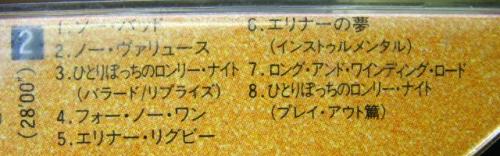 2
(28'00")
1. ソー・バッド
2. ノー・ヴァリュース
3. ひとりぼっちのロンリー・ナイト
(バラード/リプライズ)
4. フォー・ノー・ワン
5. エリナー・リグビー
6. エリナーの夢
(インストゥルメンタル)
7. ロング・アンド・ワインディング・ロード
8. ひとりぼっちのロンリー・ナイト
(プレイ・アウト篇)